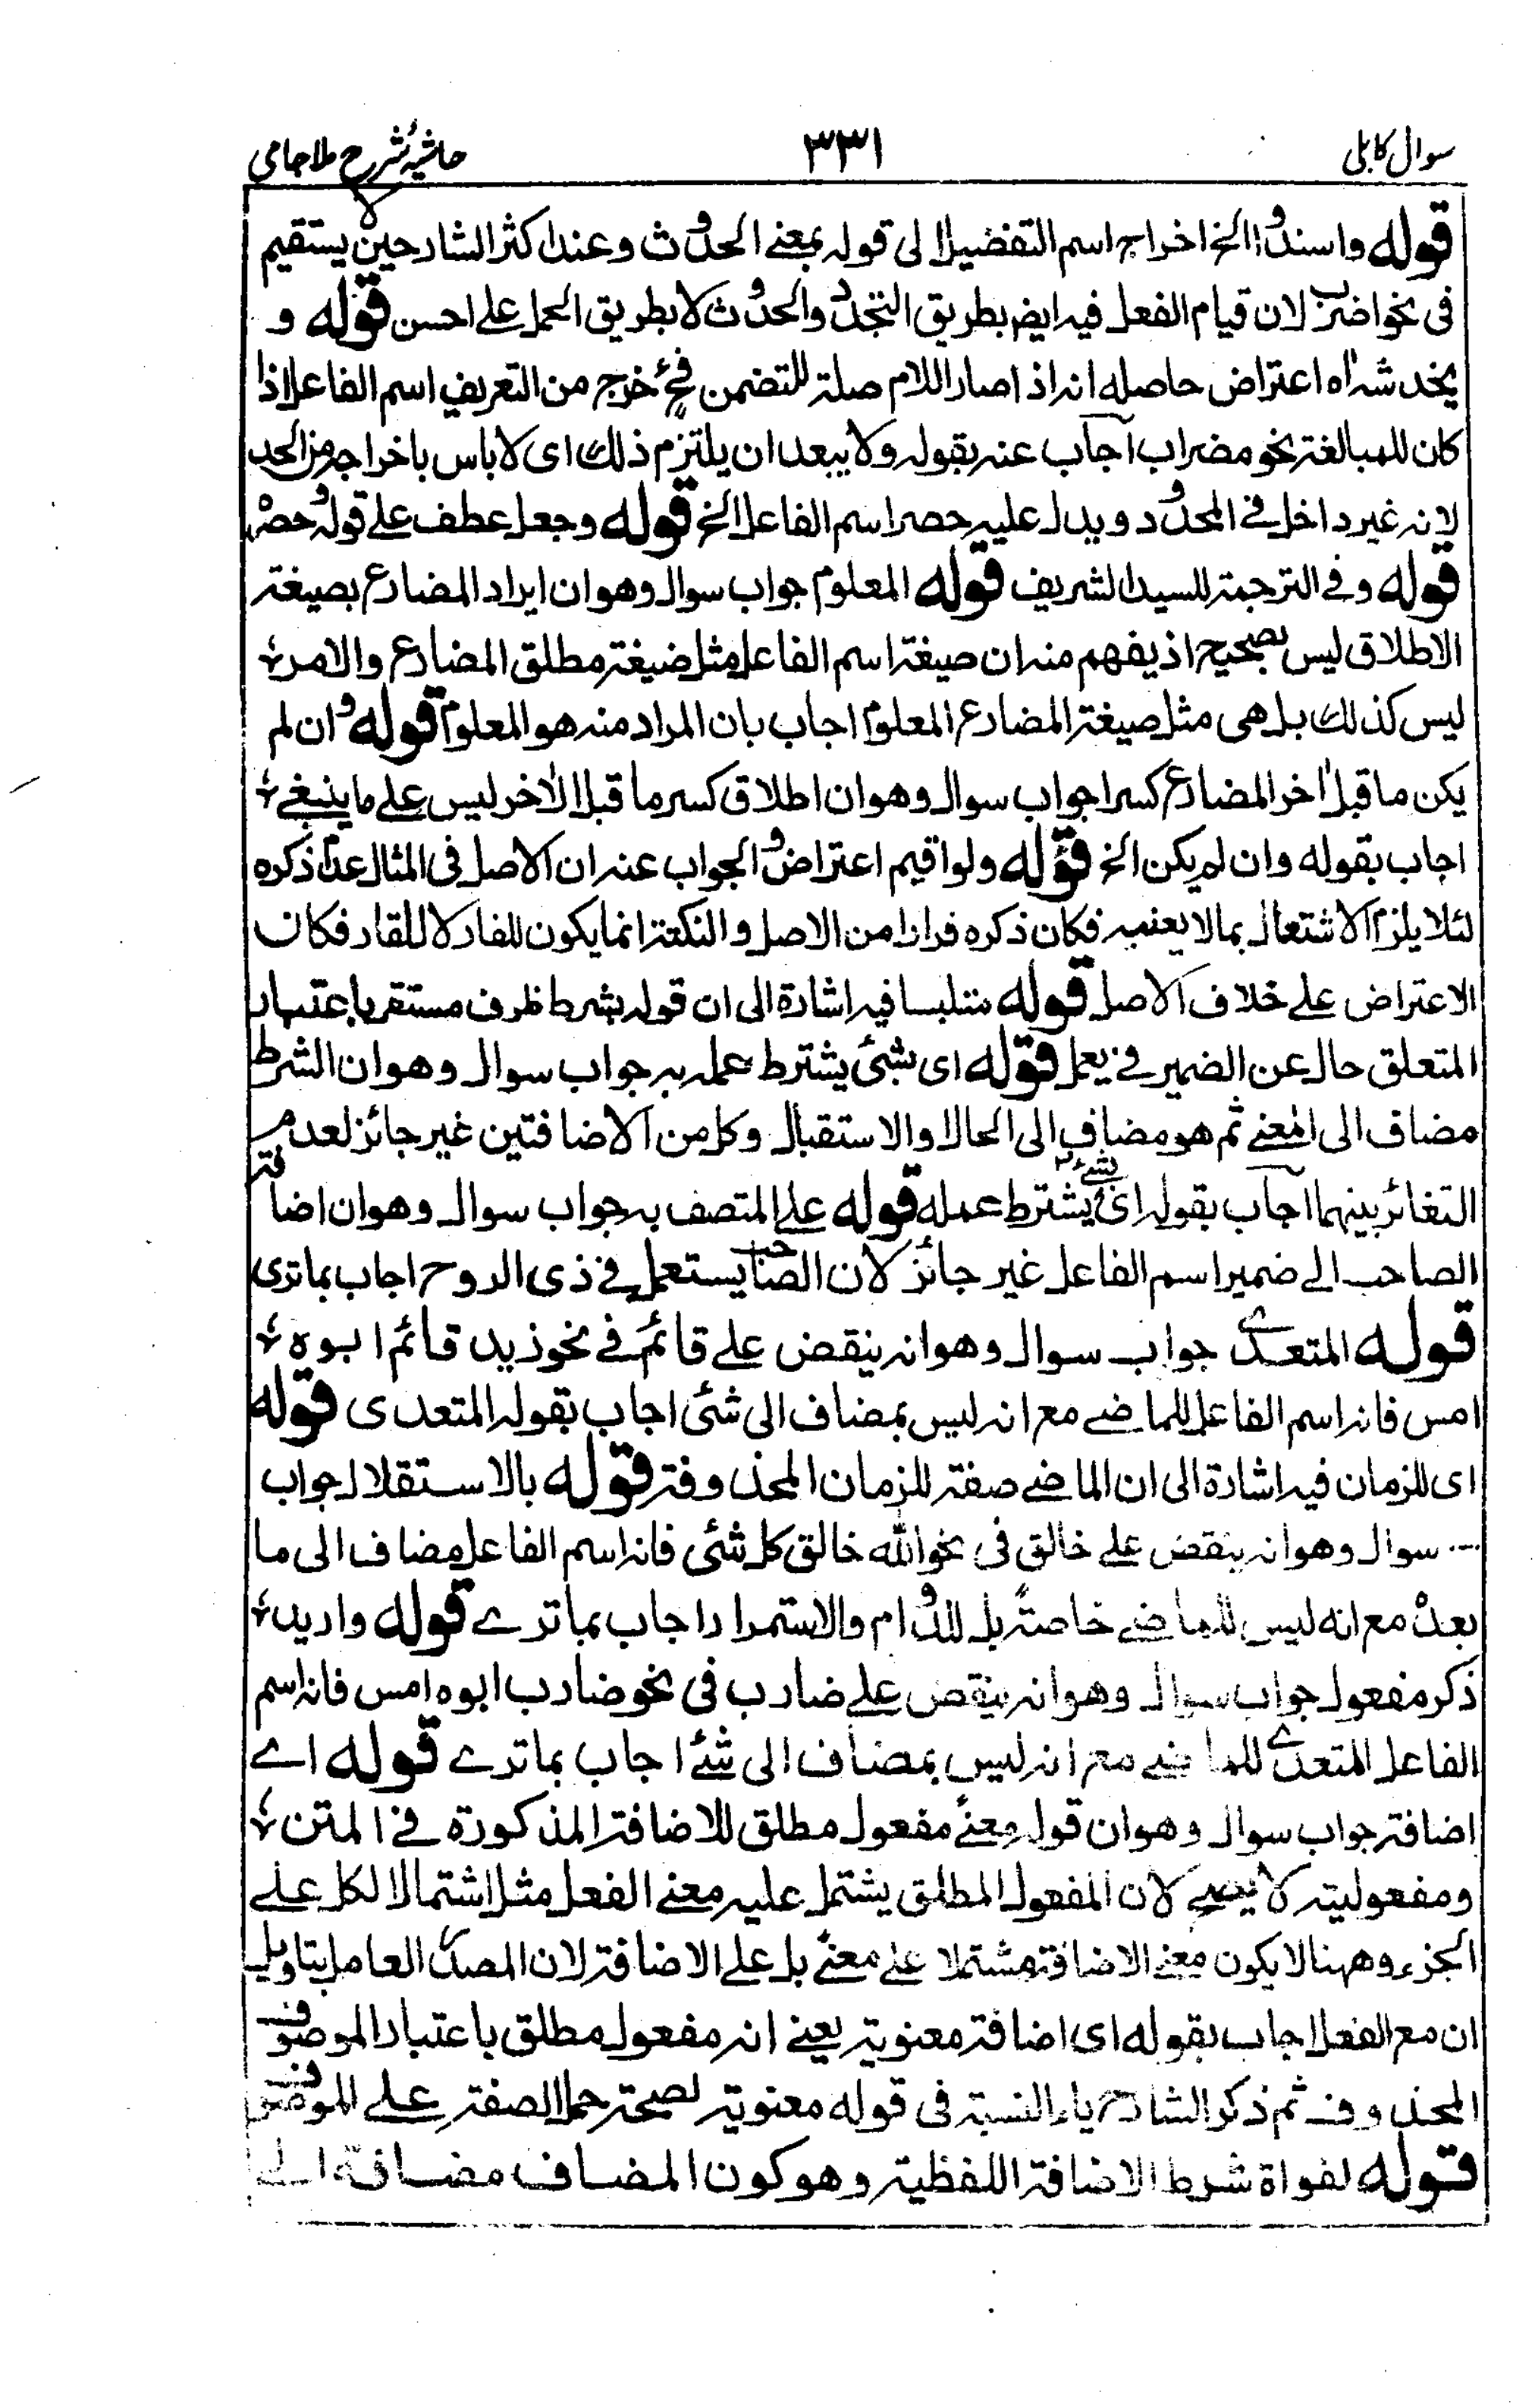 سوال کابلی ۳۳۱ حاشیۂ شرح ملا جامی
قوله واسندوا الخ اخراج اسم التفضيل الى قوله بمعنى الحدوث وعند اكثر الشارحين لا يستقيم
فى نحو اضرب لان قيام الفعل فيه ايض بطريق التجدد والحدوث لا بطريق الحمل على احسن قوله و
يخدشه اه اعتراض حاصله انه اذا صار اللام صلة للتضمن فح خرج من التعريف اسم الفاعل اذا
كان للمبالغة نحو مضراب اجاب عنه بقوله ولا يبعد ان يلتزم ذلك اى لا باس باخراجه من الحد
لانه غير داخل فى المحدود ويدل عليه حصر اسم الفاعل الخ قوله وجعل عطف على قوله حصره
قوله وفى الترجمة للسيد الشريف قوله المعلوم جواب سوال وهو ان ايراد المضارع بصيغة
الاطلاق ليس بصحيح اذ يفهم منه ان صيغة اسم الفاعل مثل ضيغة مطلق المضارع والامر
ليس كذلك بل هى مثل صيغة المضارع المعلوم اجاب بان المراد منه هو المعلوم قوله وان لم
يكن ما قبل اخر المضارع كسرا جواب سوال وهو ان اطلاق كسر ما قبل الاخر ليس على ما ينبغى
اجاب بقوله وان لم يكن الخ قوله ولو اقيم اعتراض والجواب عنه ان الاصل فى المثال عدم ذكره
لئلا يلزم الاشتغال بما لا يعنيه فكان ذكره فرارا من الاصل والنكتة انما يكون للفار لا للقار فكان
الاعتراض على خلاف الاصل قوله متلبسا فيه اشارة الى ان قوله بشرط ظرف مستقر باعتبار
المتعلق حال عن الضمير فى يعمل قوله اى بشئ يشترط عمله به جواب سوال وهو ان الشرط
مضاف الى المعنى ثم هو مضاف الى الحال او الاستقبال وكل من الاضافتين غير جائز لعدم
التغائر بينهما اجاب بقوله اى بشئ يشترط عمله قوله على المتصف به جواب سوال وهو ان اضافة
الصاحب الى ضمير اسم الفاعل غير جائز لان الصاحب يستعمل فى ذى الروح اجاب بما ترى
قوله المتعدى جواب سوال وهو انه ينقض على قائم فى نحو زيد قائم ابوه
امس فانه اسم الفاعل للماضى مع انه ليس بمضاف الى شئ اجاب بقوله المتعدى قوله
اى للزمان فيه اشارة الى ان الماضى صفة للزمان المحذوفة قوله بالاستقلال جواب
سوال وهو انه ينقض على خالق فى نحو الله خالق كل شئ فانه اسم الفاعل مضاف الى ما
بعده مع انه ليس للماضى خاصة بل للدوام والاستمرار اجاب بما ترے قوله واريد
ذكر مفعول جواب سوال وهو انه ينقض على ضارب فى نحو ضارب ابوه امس فانه اسم
الفاعل المتعدى للماضى مع انه ليس بمضاف الى شئ اجاب بما ترے قوله اے
اضافة جواب سوال وهو ان قوله معنى مفعول مطلق للاضافة المذكورة فى المتن
ومفعوليته لا يصح لان المفعول المطلق يشتمل عليه معنى الفعل مثل اشتمال الكل على
الجزء وههنا لا يكون معنى الاضافة مشتملا على معنى بل على الاضافة لان المصدر العامل بتاويل
ان مع الفعل اجاب بقوله اى اضافة معنوية يعنى انه مفعول مطلق باعتبار الموصوف
المحذوف ثم ذكر الشارح ياء النسبة فى قوله معنوية لصحة حمل الصفة على الموصوف
قوله لفواة شرط الاضافة اللفظية وهو كون المضاف مضافة الى